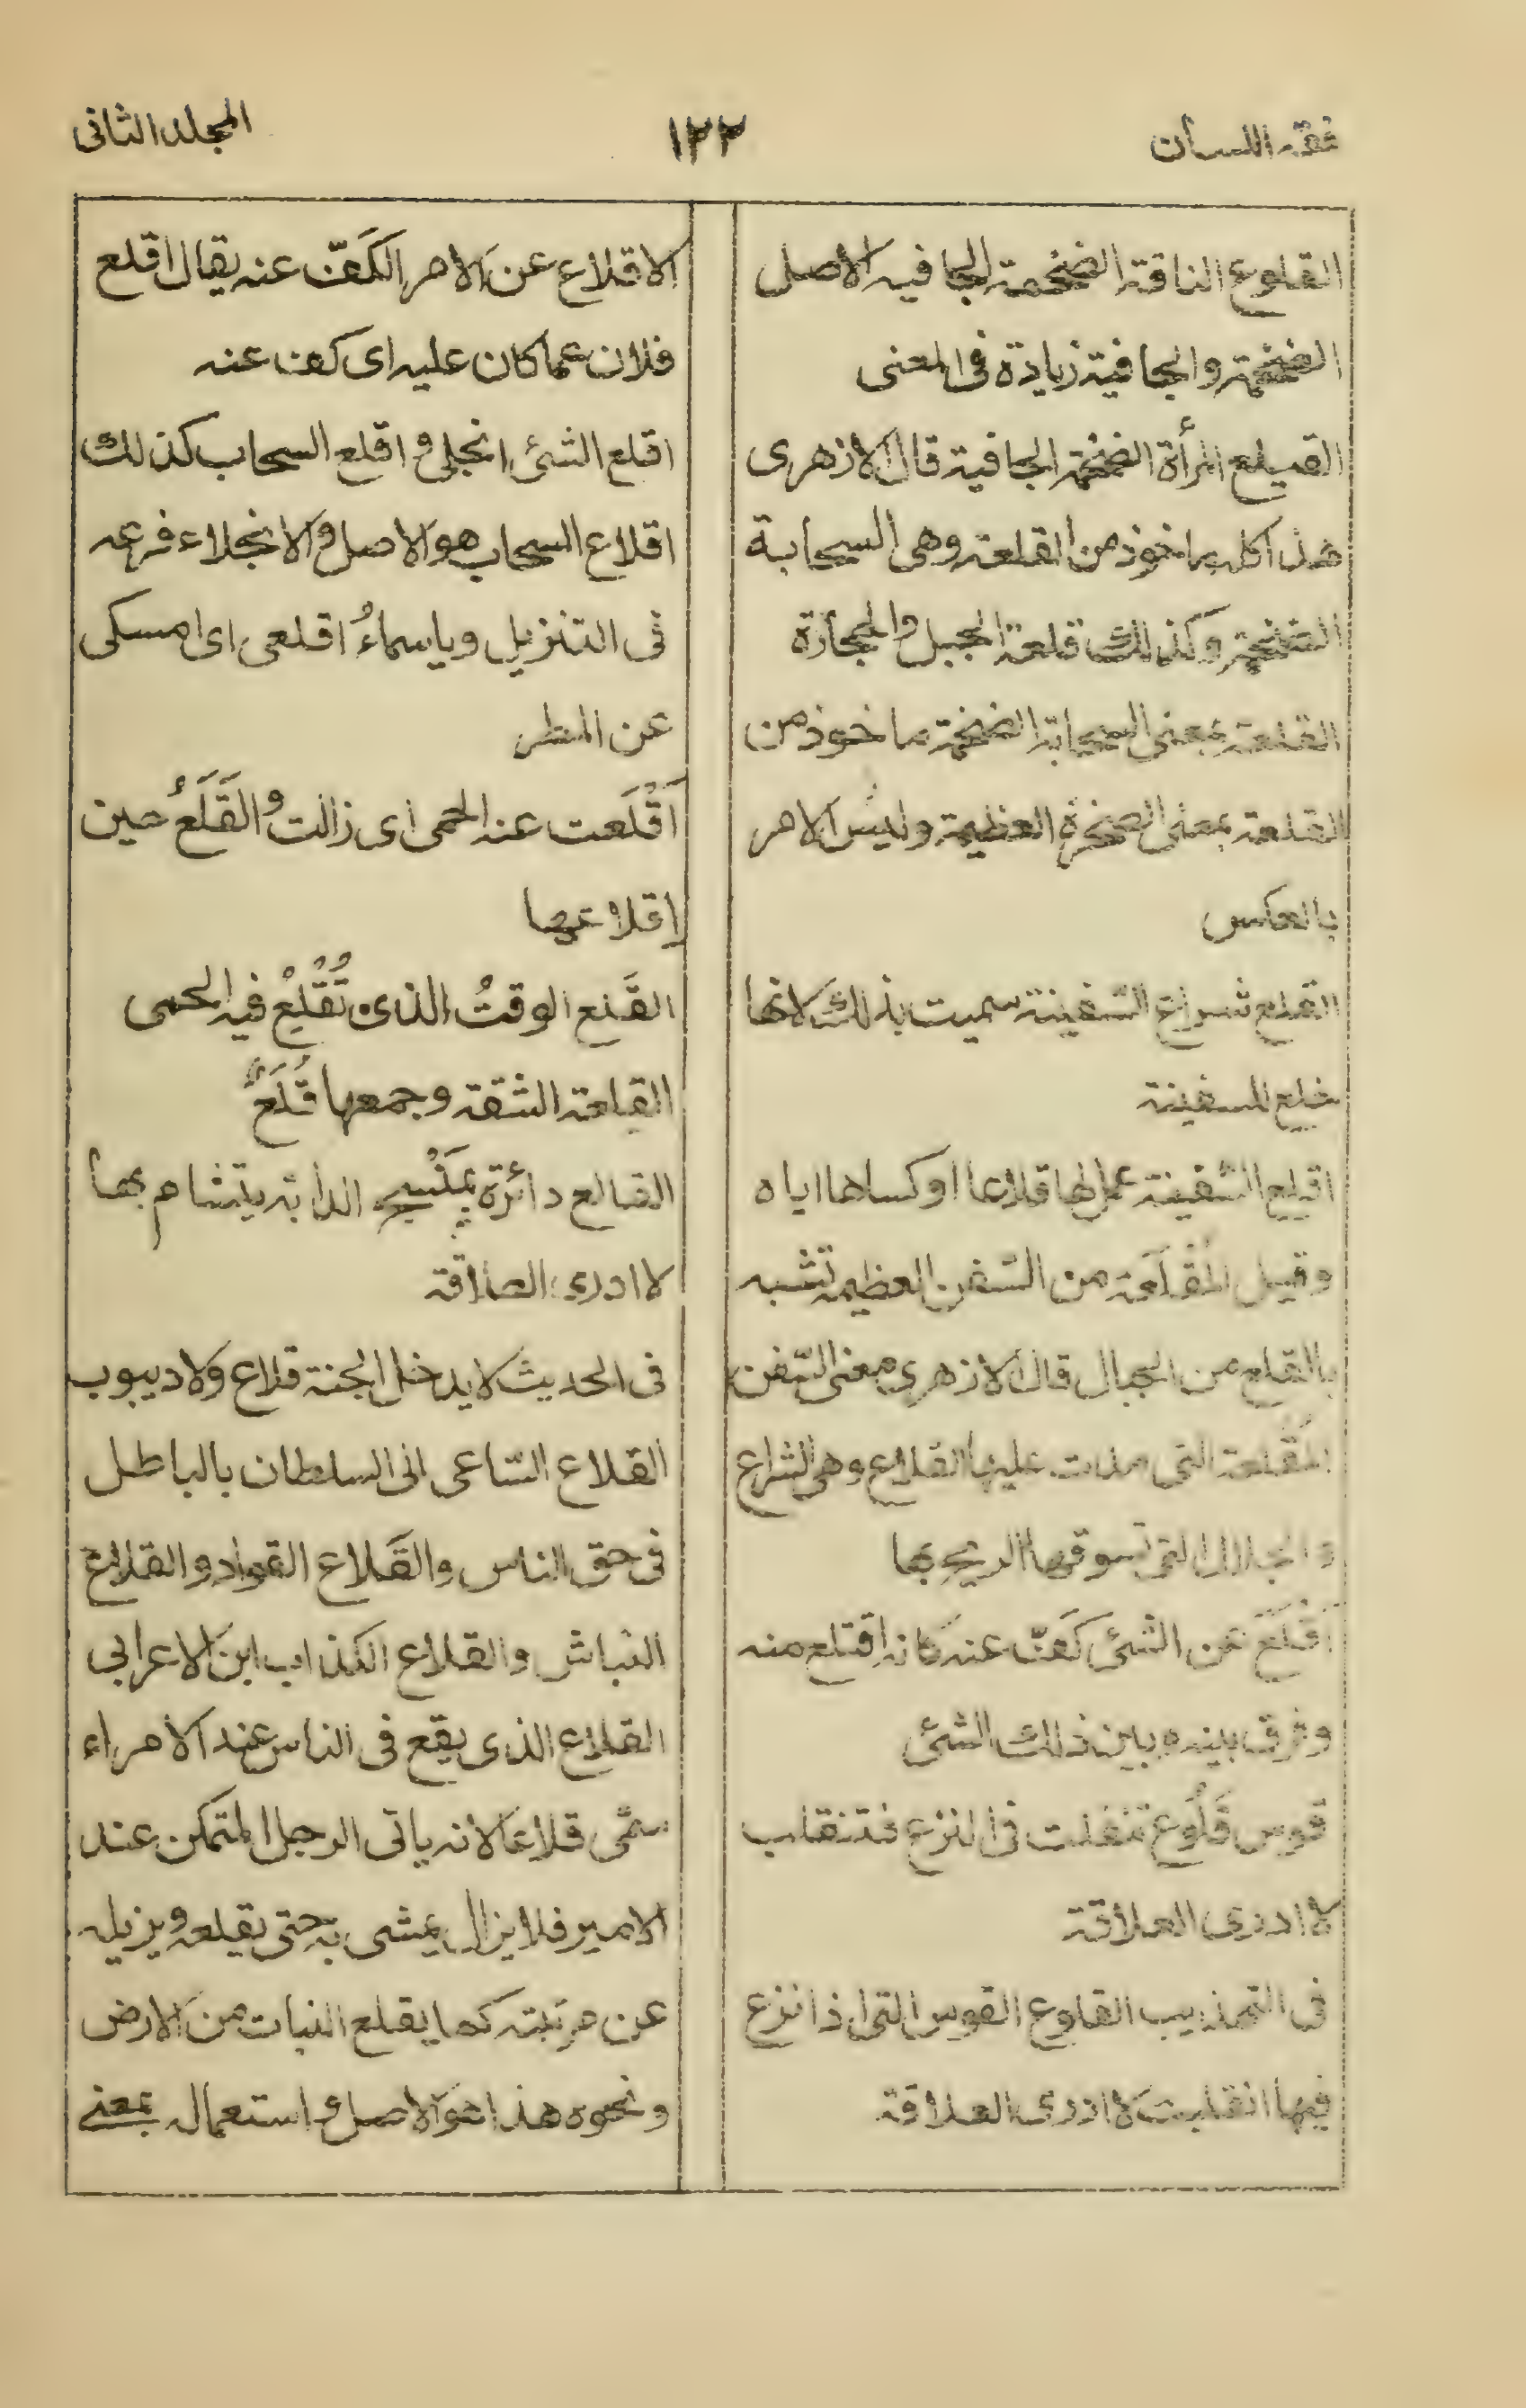 فقه اللسان
١٢٢
المجلد الثانى
القلوع الناقة الضخمة الجافيه الاصل
الضخمة والجافية زيادة فى المعنى
القيلع المرأة الضخمة الجافية قال الازهرى
هذا كله ماخوذ من القلعة وهى السحابة
الضخمة وكذلك قلعة الجبل والحجارة
القلعة بمعنى السحابة الضخمة ماخوذ من
القلعة بمعنى الصخرة العظيمة وليس الامر
بالعكس
القلع شراع السّفينة سميت بذلك لانها
خلع للسفينة
اقلع السّفينة عمل لها قلاعا او كساها اياه
وقيل المُقلَعة من السّفن العظيمه تشبه
بالقلع من الجبال قال الازهرى معنى السّفن
المُقْلعة التى مدت عليها القلاع وهى الشراع
والجلال التى تسوقها الريح بها
اَقْلَعَ عن الشئ كَفّ عنه كانه اقتلع منه
وفرق بينه بين ذلك الشئ
قوس قَلُوع تنفلت فى النزع فتنقلب
لا ادرى العلاقة
فى التهذيب القلوع القوس التى اذا نزع
فيها انقلبت لا ادرى العلاقة
الاقلاع عن الامر الكَفّ عنه يقال اقلع
فلان عما كان عليه اى كف عنه
اقلع الشئ انجلى و اقلع السحاب كذلك
اقلاع السحاب هو الاصل و الانجلاء فرعه
فى التنزيل وياسماءُ اقلعى اى امسكى
عن المطر
اَقْلَعت عنه الحمى اى زالت والقَلَعُ حين
إقلاعها
القَلع الوقتُ الذى تُقْلِعُ فيه الحمى
القلعة الشقة وجمعها قُلَعٌ
القالع دائرة بمَنْسِج الدابة يتشام بها
لا ادرى العلاقة
فى الحديث لا يدخل الجنة قلاع ولا ديبوب
القلاع السّاعى الى السلطان بالباطل
فى حق الناس والقَلاع القواد والقلاع
النباش والقلاع الكذاب ابن الاعرابى
القلاع الذى يقع فى الناس عند الامراء
سمّى قلاعا لانه ياتى الرجل المتمكن عند
الامير فلا يزال يمشى به حتى يقلعه ويزيله
عن مرتبته كما يقلع النبات من الارض
ونحوه هذا هو الاصل و استعماله بمعنے